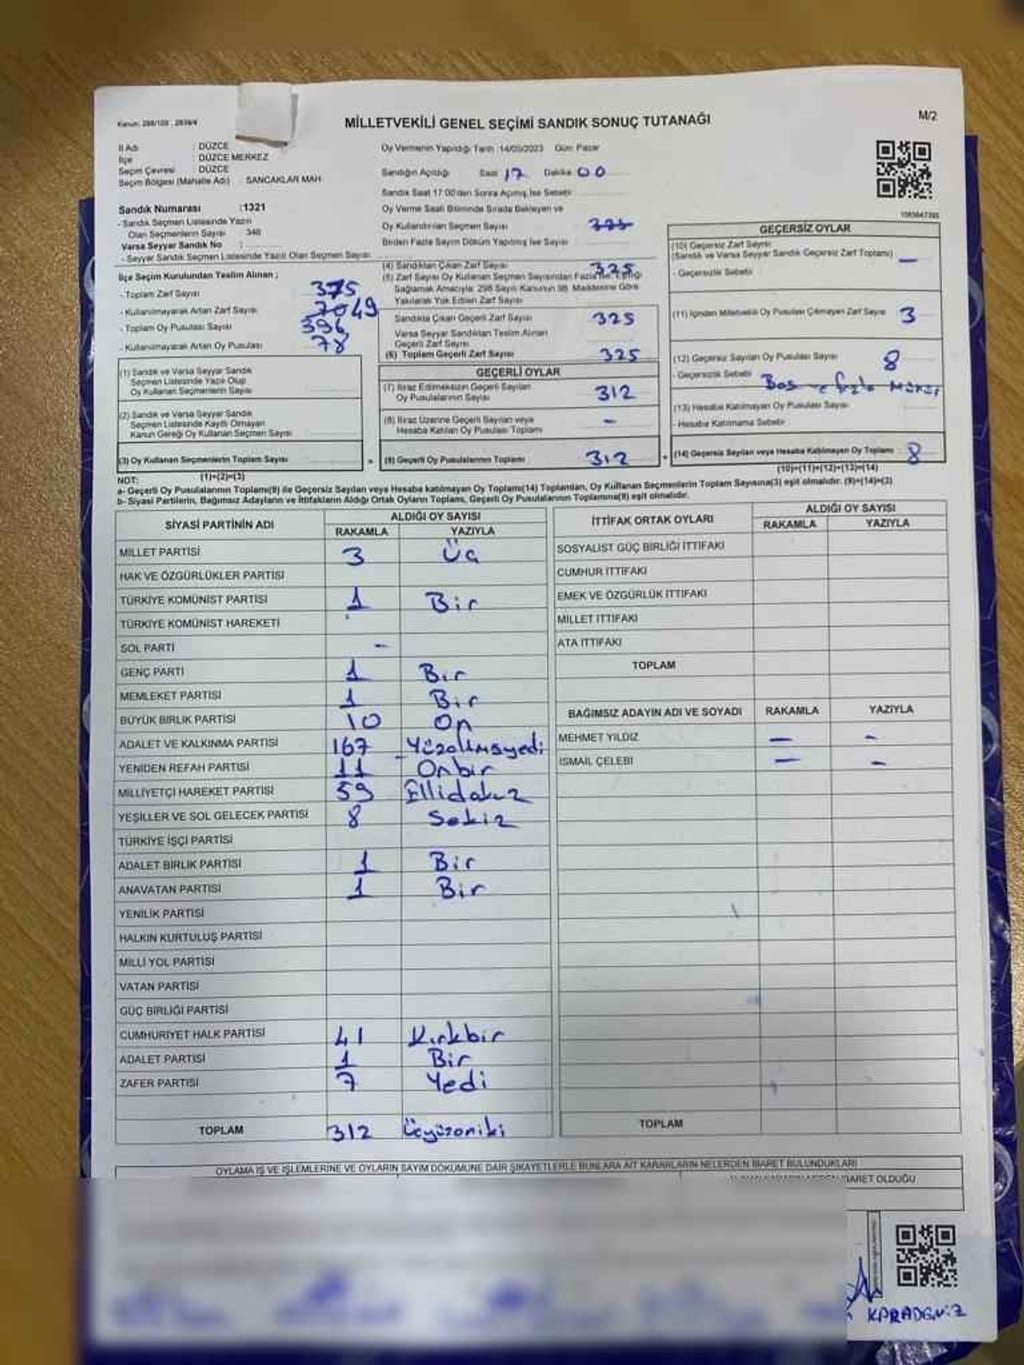 Kanun: 298/105 , 2839/4
MİLLETVEKİLİ GENEL SEÇİMİ SANDIK SONUÇ TUTANAĞI
M/2
İl Adı : DÜZCE
İlçe : DÜZCE MERKEZ
Seçim Çevresi : DÜZCE
Seçim Bölgesi (Mahalle Adı) : SANCAKLAR MAH.
Sandık Numarası :1321
- Sandık Seçmen Listesinde Yazılı
Olan Seçmenlerin Sayısı : 346
Varsa Seyyar Sandık No :
- Seyyar Sandık Seçmen Listesinde Yazılı Olan Seçmen Sayısı
İlçe Seçim Kurulundan Teslim Alınan ;
- Toplam Zarf Sayısı 375
- Kullanılmayarak Artan Zarf Sayısı 49
- Toplam Oy Pusulası Sayısı 396
- Kullanılmayarak Artan Oy Pusulası 78
(1) Sandık ve Varsa Seyyar Sandık
Seçmen Listesinde Yazılı Olup
Oy Kullanan Seçmenlerin Sayısı
(2) Sandık ve Varsa Seyyar Sandık
Seçmen Listesinde Kayıtlı Olmayan
Kanun Gereği Oy Kullanan Seçmen Sayısı
(3) Oy Kullanan Seçmenlerin Toplam Sayısı
(1)+(2)=(3)
Oy Vermenin Yapıldığı Tarih :14/05/2023 Gün: Pazar
Sandığın Açıldığı Saat 17 Dakika 00
Sandık Saat 17:00'den Sonra Açılmış İse Sebebi
Oy Verme Saati Bitiminde Sırada Bekleyen ve
Oy Kullandırılan Seçmen Sayısı 325
Birden Fazla Sayım Döküm Yapılmış İse Sayısı
(4) Sandıktan Çıkan Zarf Sayısı 325
(5) Zarf Sayısı Oy Kullanan Seçmen Sayısından Fazla İse, Eşitliği
Sağlamak Amacıyla; 298 Sayılı Kanunun 98. Maddesine Göre
Yakılarak Yok Edilen Zarf Sayısı
Sandıkta Çıkan Geçerli Zarf Sayısı 325
Varsa Seyyar Sandıktan Teslim Alınan
Geçerli Zarf Sayısı
(6) Toplam Geçerli Zarf Sayısı 325
GEÇERLİ OYLAR
(7) İtiraz Edilmeksizin Geçerli Sayılan
Oy Pusulalarının Sayısı 312
(8) İtiraz Üzerine Geçerli Sayılan veya
Hesaba Katılan Oy Pusulası Toplamı -
(9) Geçerli Oy Pusulalarının Toplamı 312
GEÇERSİZ OYLAR
(10) Geçersiz Zarf Sayısı
(Sandık ve Varsa Seyyar Sandık Geçersiz Zarf Toplamı) -
- Geçersizlik Sebebi
(11) İçinden Milletvekili Oy Pusulası Çıkmayan Zarf Sayısı 3
(12) Geçersiz Sayılan Oy Pusulası Sayısı 8
- Geçersizlik Sebebi Boş ve fazla
(13) Hesaba Katılmayan Oy Pusulası Sayısı
- Hesaba Katılmama Sebebi
(14) Geçersiz Sayılan veya Hesaba Katılmayan Oy Toplamı 8
(10)+(11)+(12)+(13)=(14)
NOT:
a- Geçerli Oy Pusulalarının Toplamı(9) ile Geçersiz Sayılan veya Hesaba katılmayan Oy Toplamı(14) Toplamları, Oy Kullanan Seçmenlerin Toplam Sayısına(3) eşit olmalıdır. (9)+(14)=(3)
b- Siyasi Partilerin, Bağımsız Adayların ve İttifakların Aldığı Ortak Oyların Toplamı, Geçerli Oy Pusulalarının Toplamına(9) eşit olmalıdır.
SİYASİ PARTİNİN ADI ALDIĞI OY SAYISI
RAKAMLA YAZIYLA
MİLLET PARTİSİ 3 Üç
HAK VE ÖZGÜRLÜKLER PARTİSİ
TÜRKİYE KOMÜNİST PARTİSİ 1 Bir
TÜRKİYE KOMÜNİST HAREKETİ
SOL PARTİ -
GENÇ PARTİ 1 Bir
MEMLEKET PARTİSİ 1 Bir
BÜYÜK BİRLİK PARTİSİ 10 On
ADALET VE KALKINMA PARTİSİ 167 Yüzaltmışyedi
YENİDEN REFAH PARTİSİ 11 Onbir
MİLLİYETÇİ HAREKET PARTİSİ 59 Ellidokuz
YEŞİLLER VE SOL GELECEK PARTİSİ 8 Sekiz
TÜRKİYE İŞÇİ PARTİSİ
ADALET BİRLİK PARTİSİ 1 Bir
ANAVATAN PARTİSİ 1 Bir
YENİLİK PARTİSİ
HALKIN KURTULUŞ PARTİSİ
MİLLİ YOL PARTİSİ
VATAN PARTİSİ
GÜÇ BİRLİĞİ PARTİSİ
CUMHURİYET HALK PARTİSİ 41 Kırkbir
ADALET PARTİSİ 1 Bir
ZAFER PARTİSİ 7 Yedi
TOPLAM 312 Üçyüzoniki
İTTİFAK ORTAK OYLARI ALDIĞI OY SAYISI
RAKAMLA YAZIYLA
SOSYALİST GÜÇ BİRLİĞİ İTTİFAKI
CUMHUR İTTİFAKI
EMEK VE ÖZGÜRLÜK İTTİFAKI
MİLLET İTTİFAKI
ATA İTTİFAKI
TOPLAM
BAĞIMSIZ ADAYIN ADI VE SOYADI RAKAMLA YAZIYLA
MEHMET YILDIZ - -
İSMAİL ÇELEBİ - -
TOPLAM
OYLAMA İŞ VE İŞLEMLERİNE VE OYLARIN SAYIM DÖKÜMÜNE DAİR ŞİKAYETLERLE BUNLARA AİT KARARLARIN NELERDEN İBARET BULUNDUKLARI
İBARET OLDUĞU
KARADENİZ